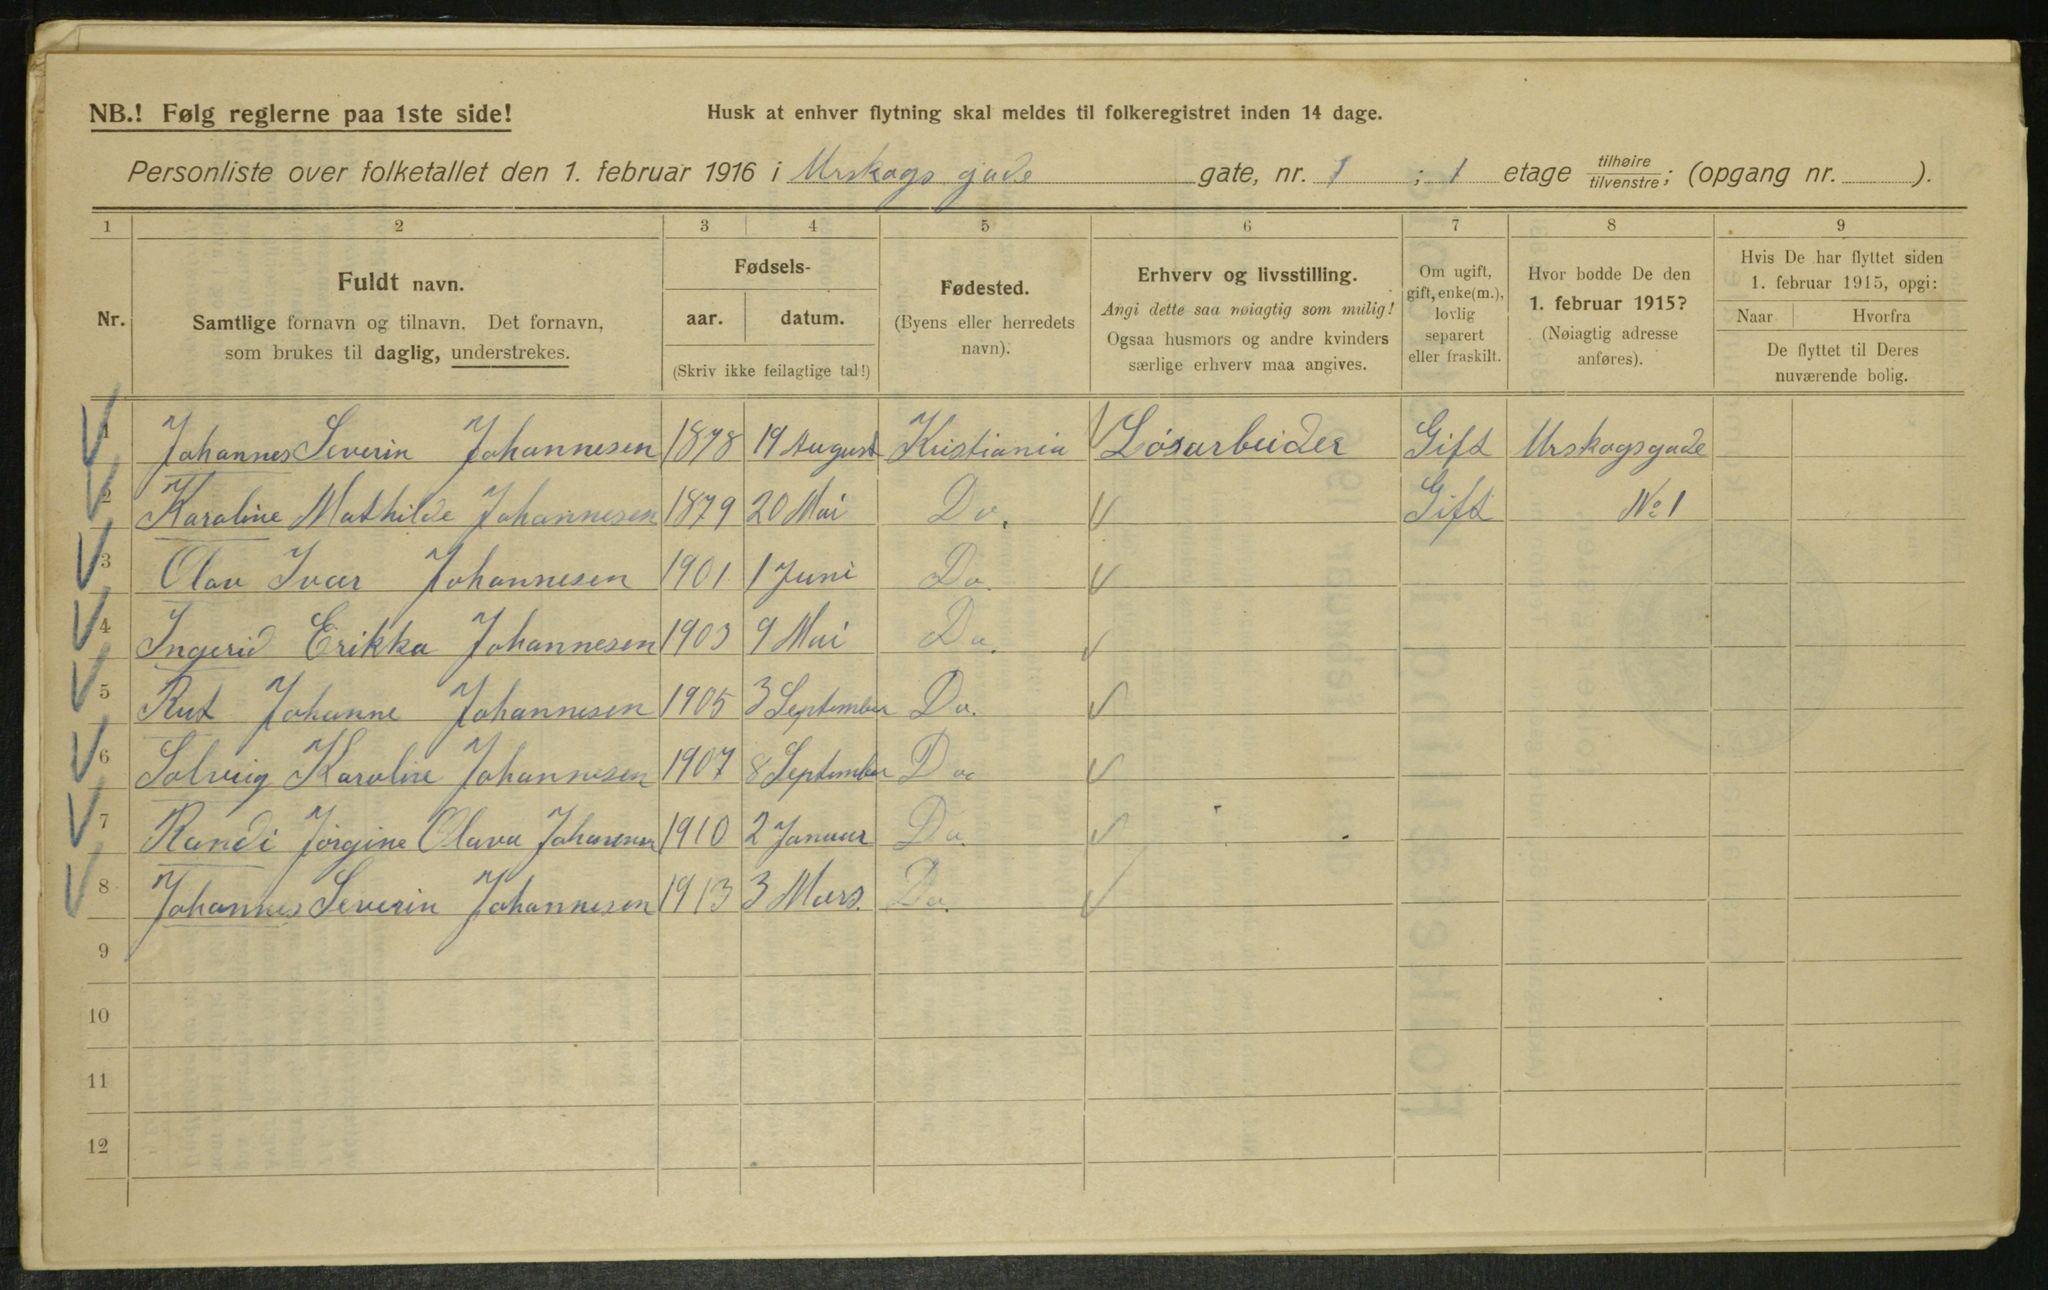 NB.! Følg reglerne paa 1ste side!
Husk at enhver flytning skal meldes til folkeregistret inden 14 dage.
Personliste over folketallet den 1. februar 1916 i Urskogs gade gate, nr. 1 ; 1 etage tilhøire/tilvenstre; (opgang nr. ).
1 2 3 4 5 6 7 8 9
Nr.
Fuldt navn.
Samtlige fornavn og tilnavn. Det fornavn,
som brukes til daglig, understrekes.
Fødsels-
aar. datum.
(Skriv ikke feilagtige tal!)
Fødested.
(Byens eller herredets
navn).
Erhverv og livsstilling.
Angi dette saa nøiagtig som mulig!
Ogsaa husmors og andre kvinders
særlige erhverv maa angives.
Om ugift,
gift, enke(m.),
lovlig
separert
eller fraskilt.
Hvor bodde De den
1. februar 1915?
(Nøiagtig adresse
anføres).
Hvis De har flyttet siden
1. februar 1915, opgi:
Naar Hvorfra
De flyttet til Deres
nuværende bolig.
1 Johannes Severin Johannesen 1878 19 August Kristiania Løsarbeider Gift Urskogsgade
2 Karoline Mathilde Johannesen 1879 20 Mai Do. Gift No 1
3 Olav Ivar Johannesen 1901 1 Juni Do.
4 Ingerid Erikka Johannesen 1903 9 Mai Do.
5 Rut Johanne Johannesen 1905 3 September Do.
6 Solveig Karoline Johannesen 1907 8 September Do
7 Randi Jørgine Olava Johannesen 1910 2 Januar Do.
8 Johannes Severin Johannesen 1913 3 Mars. Do.
9
10
11
12